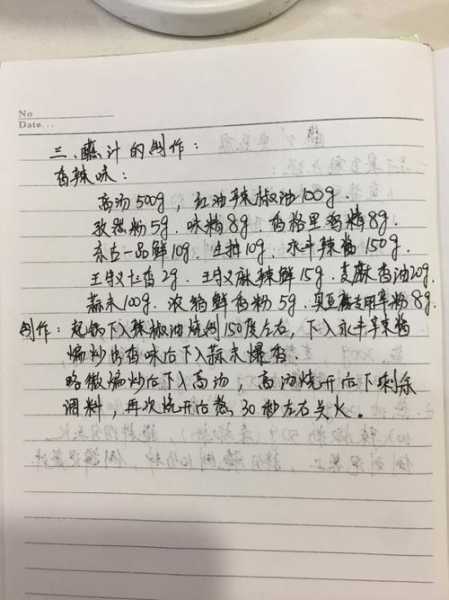 No
Date...
三、蘸汁的制作：
香辣味：
高汤500g，红油辣椒油100g.
孜然粉5g. 味精8g. 香格里鸡精8g.
东古一品鲜10g. 生抽10g. 永丰辣酱150g.
王守义十三香2g. 王守义麻辣鲜15g. 芝麻香油20g.
蒜末100g. 浓缩鲜香粉5g. 臭豆腐专用辛粉8g.
制作：起锅下入辣椒油烧到150度左右，下入永丰辣酱
煸炒出香味后下入蒜末爆香.
略微煸炒后下入高汤. 高汤烧开后下剩余
调料，再次烧开后熬30秒左右关火。